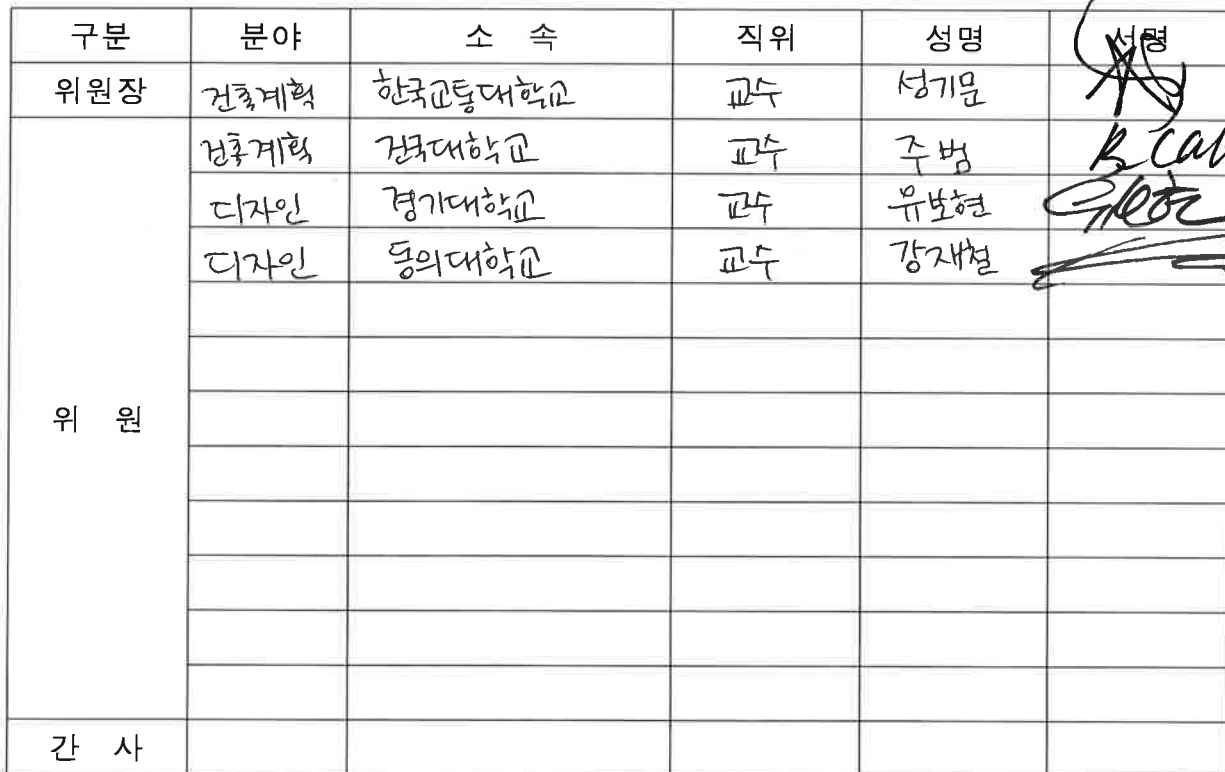 구분 분야 소 속 직위 성명 서명
위원장 건축계획 한국교통대학교 교수 성기문
건축계획 건국대학교 교수 주범
디자인 경기대학교 교수 유보현
디자인 동의대학교 교수 강재철
위 원
간 사